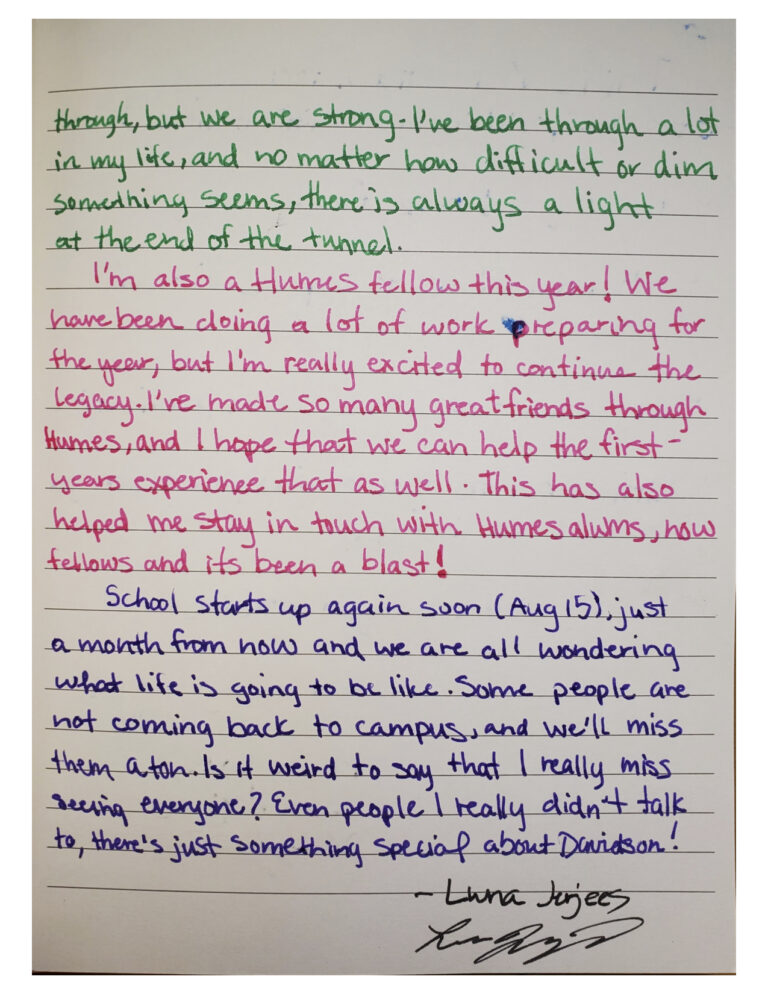 through, but we are strong. I've been through a lot
in my life, and no matter how difficult or dim
something seems, there is always a light
at the end of the tunnel.
I'm also a Humes fellow this year! We
have been doing a lot of work preparing for
the year, but I'm really excited to continue the
legacy. I've made so many great friends through
Humes, and I hope that we can help the first-
years experience that as well. This has also
helped me stay in touch with Humes alums, now
fellows and its been a blast!
School starts up again soon (Aug 15), just
a month from now and we are all wondering
what life is going to be like. Some people are
not coming back to campus, and we'll miss
them a ton. Is it weird to say that I really miss
seeing everyone? Even people I really didn't talk
to, there's just something special about Davidson!
- Luna Jerjees